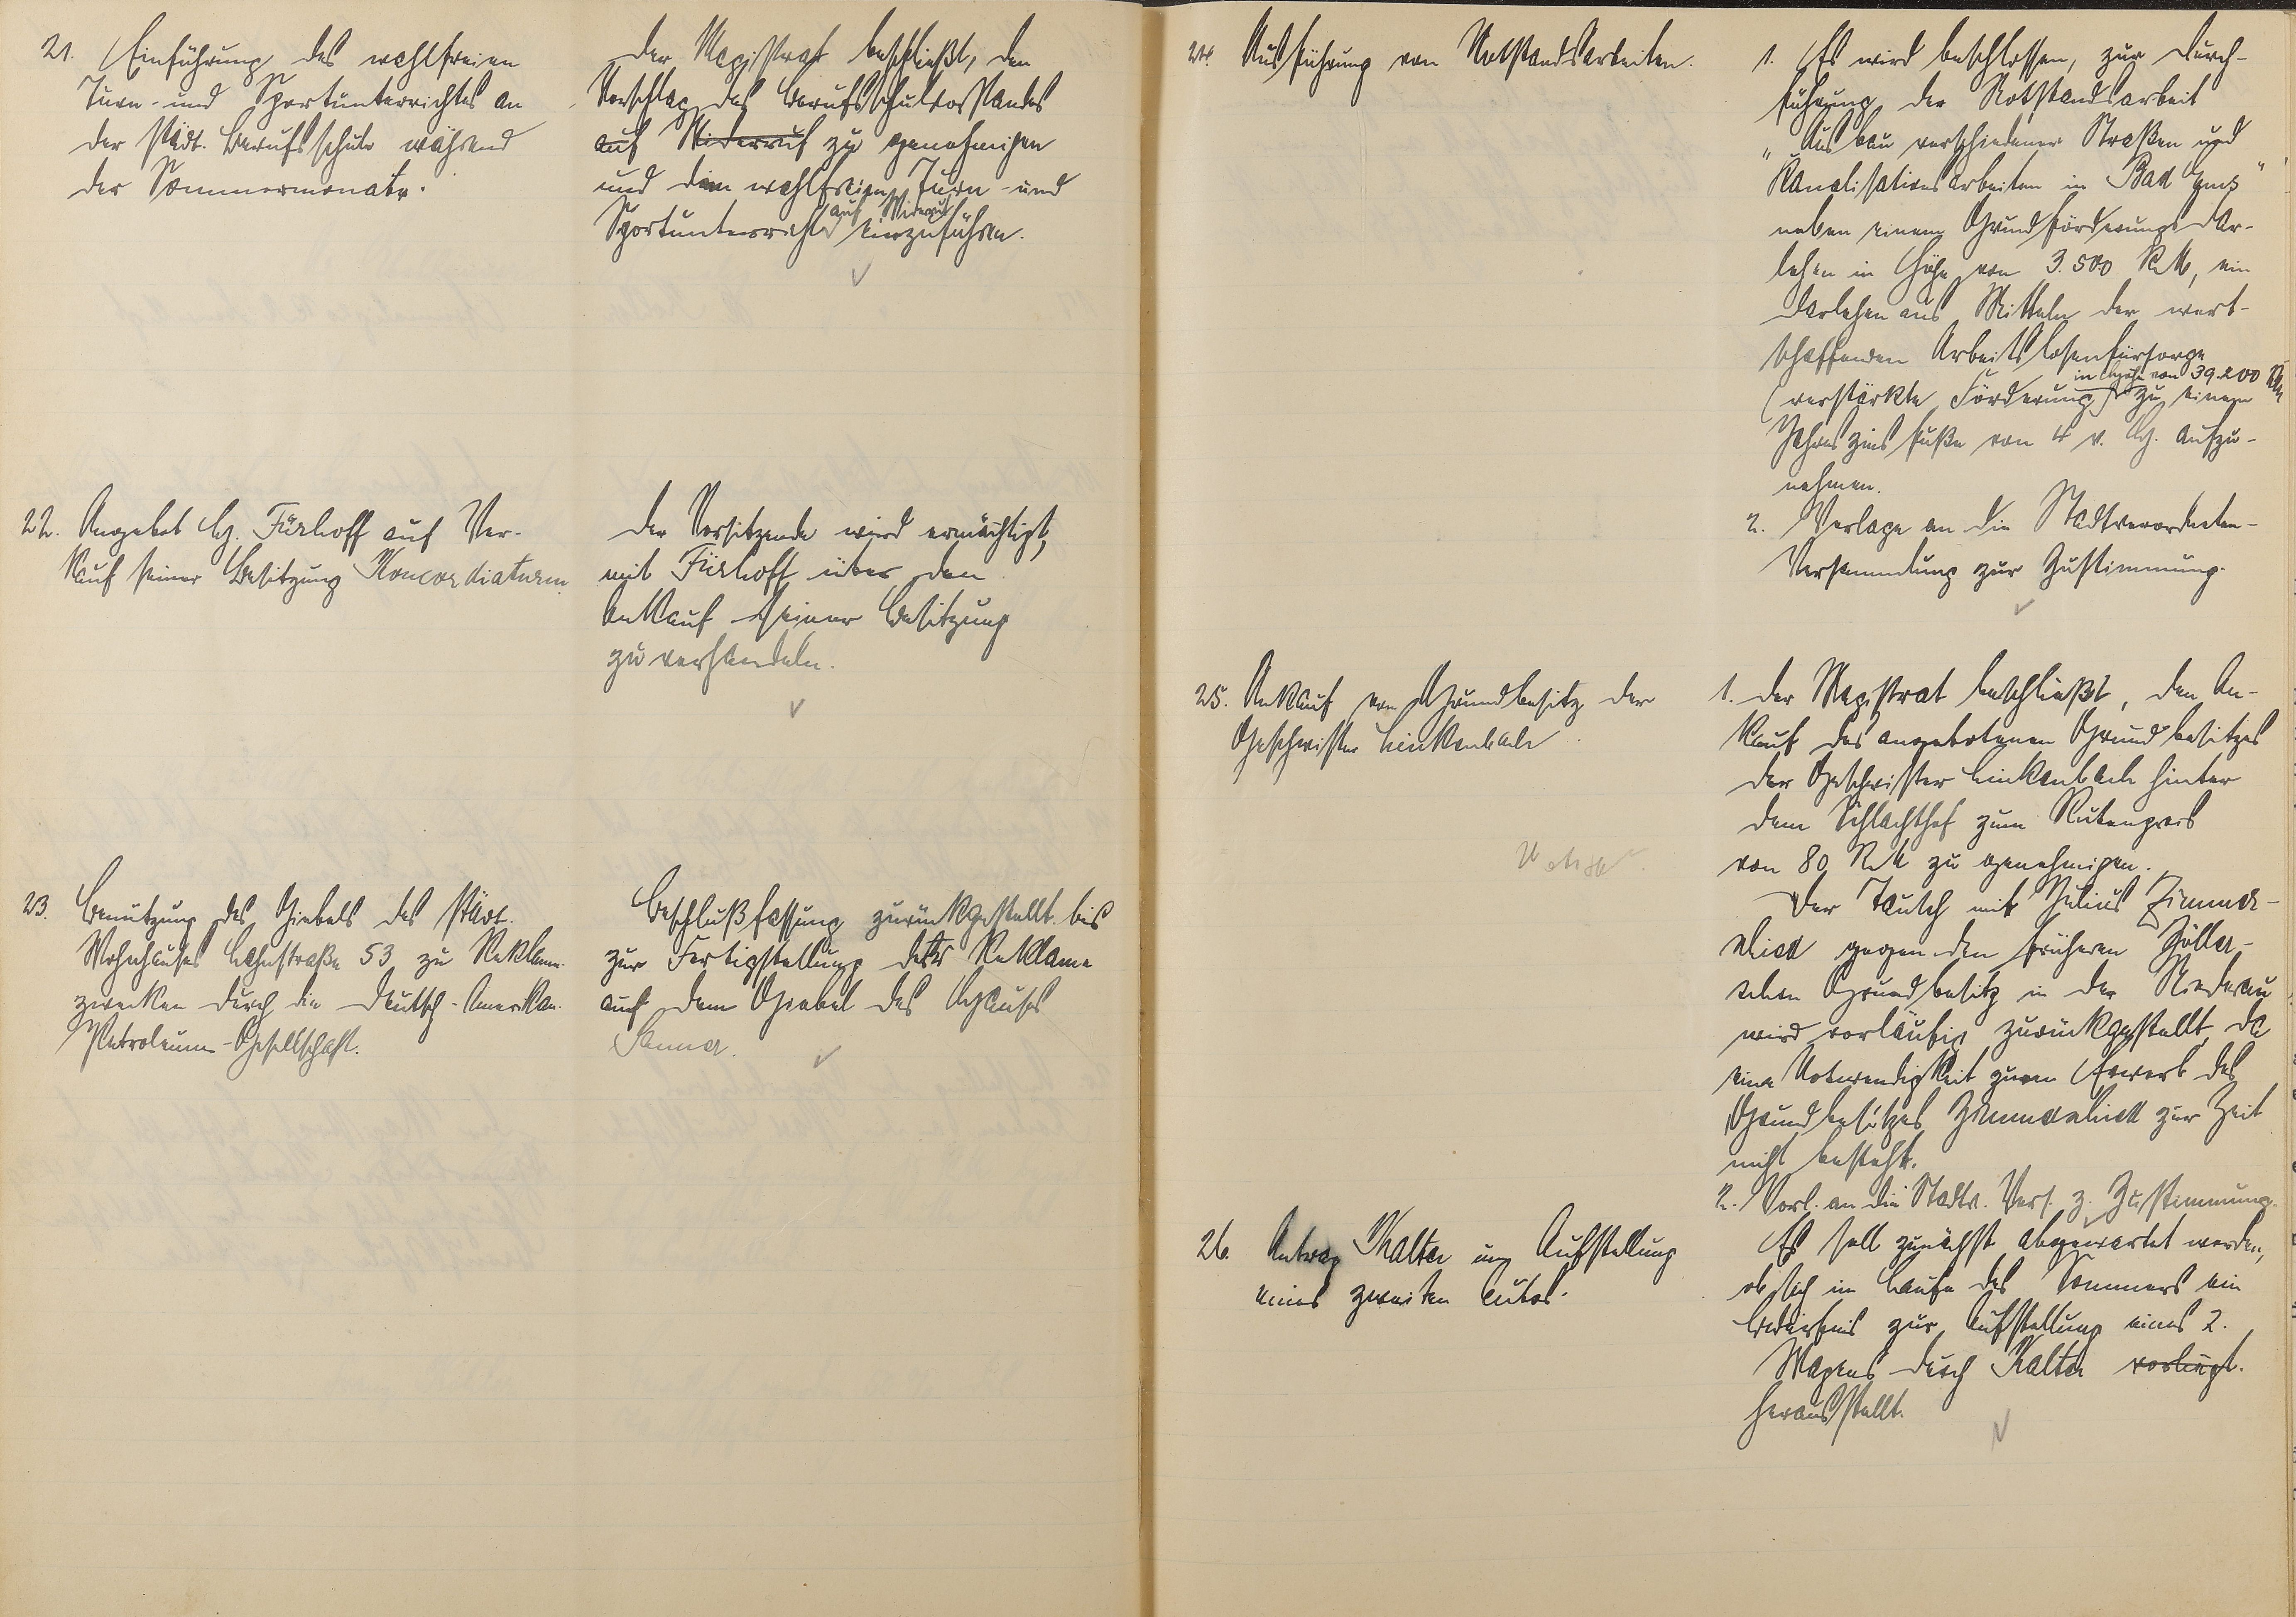 21. Einführung des wahlfreien
Turn- und Sportunterrichtes an
der städt. Berufsschule während
der Sommermonate.
Der Magistrat beschließt, den
Vorschlag des Berufsschulvorstandes
auf Widerruf zu genehmigen
und den wahlfreien Turn- und
Sportunterricht auf Widerruf einzuführen.
22. Angebot H. Fürhoff auf Ver-
kauf seiner Besitzung Koncordiaturm.
Der Vorsitzende wird ermächtigt,
mit Fürhoff über den
Ankauf seiner Besitzung
zu verhandeln.
23. Benutzung des Giebels des städt.
Wohnhauses Lahnstraße 53 zu Reklame-
zwecken durch die Deutsch-Amerikan.
Petroleum-Gesellschaft.
Beschlußfassung zurückgestellt bis
zur Fertigstellung der Reklame
auf dem Giebel des Hauses
Sauer.
24. Ausführung von Notstandsarbeiten.
1. Es wird beschlossen, zur Durch-
führung der Notstandsarbeit
"Ausbau verschiedener Straßen und
Kanalisationsarbeiten in Bad Ems"
neben einem Grundförderungsdar-
lehen in Höhe von 3.500 RM, ein
Darlehen aus Mitteln der wert-
schaffenden Arbeitslosenfürsorge
(verstärkte Förderung) in Höhe von 39.200 RM zu einem
Jahreszinsfuße von 4 v. H. aufzu-
nehmen.
2. Vorlage an die Stadtverordneten-
Versammlung zur Zustimmung.
25. Ankauf von Grundbesitz der
Geschwister Linkenbach
1. Der Magistrat beschließt, den An-
kauf des angebotenen Grundbesitzes
der Geschwister Linkenbach hinter
dem Schlachthof zum Rutenpreis
von 80 RM zu genehmigen.
Der Tausch mit Julius Zimmer-
schied gegen den früheren Zöller-
schen Grundbesitz in der Niederau
wird vorläufig zurückgestellt, da
eine Notwendigkeit zum Erwerb des
Grundbesitzes Zimmerschied zur Zeit
nicht besteht.
2. Vorl. an die Stadtv. Vers. z. Zustimmung.
26. Antrag Kalter um Aufstellung
eines zweiten Autos.
Es soll zunächst abgewartet werden,
ob sich im Laufe des Sommers ein
Bedürfnis zur Aufstellung eines 2.
Wagens durch Kalter vorliegt.
herausstellt.